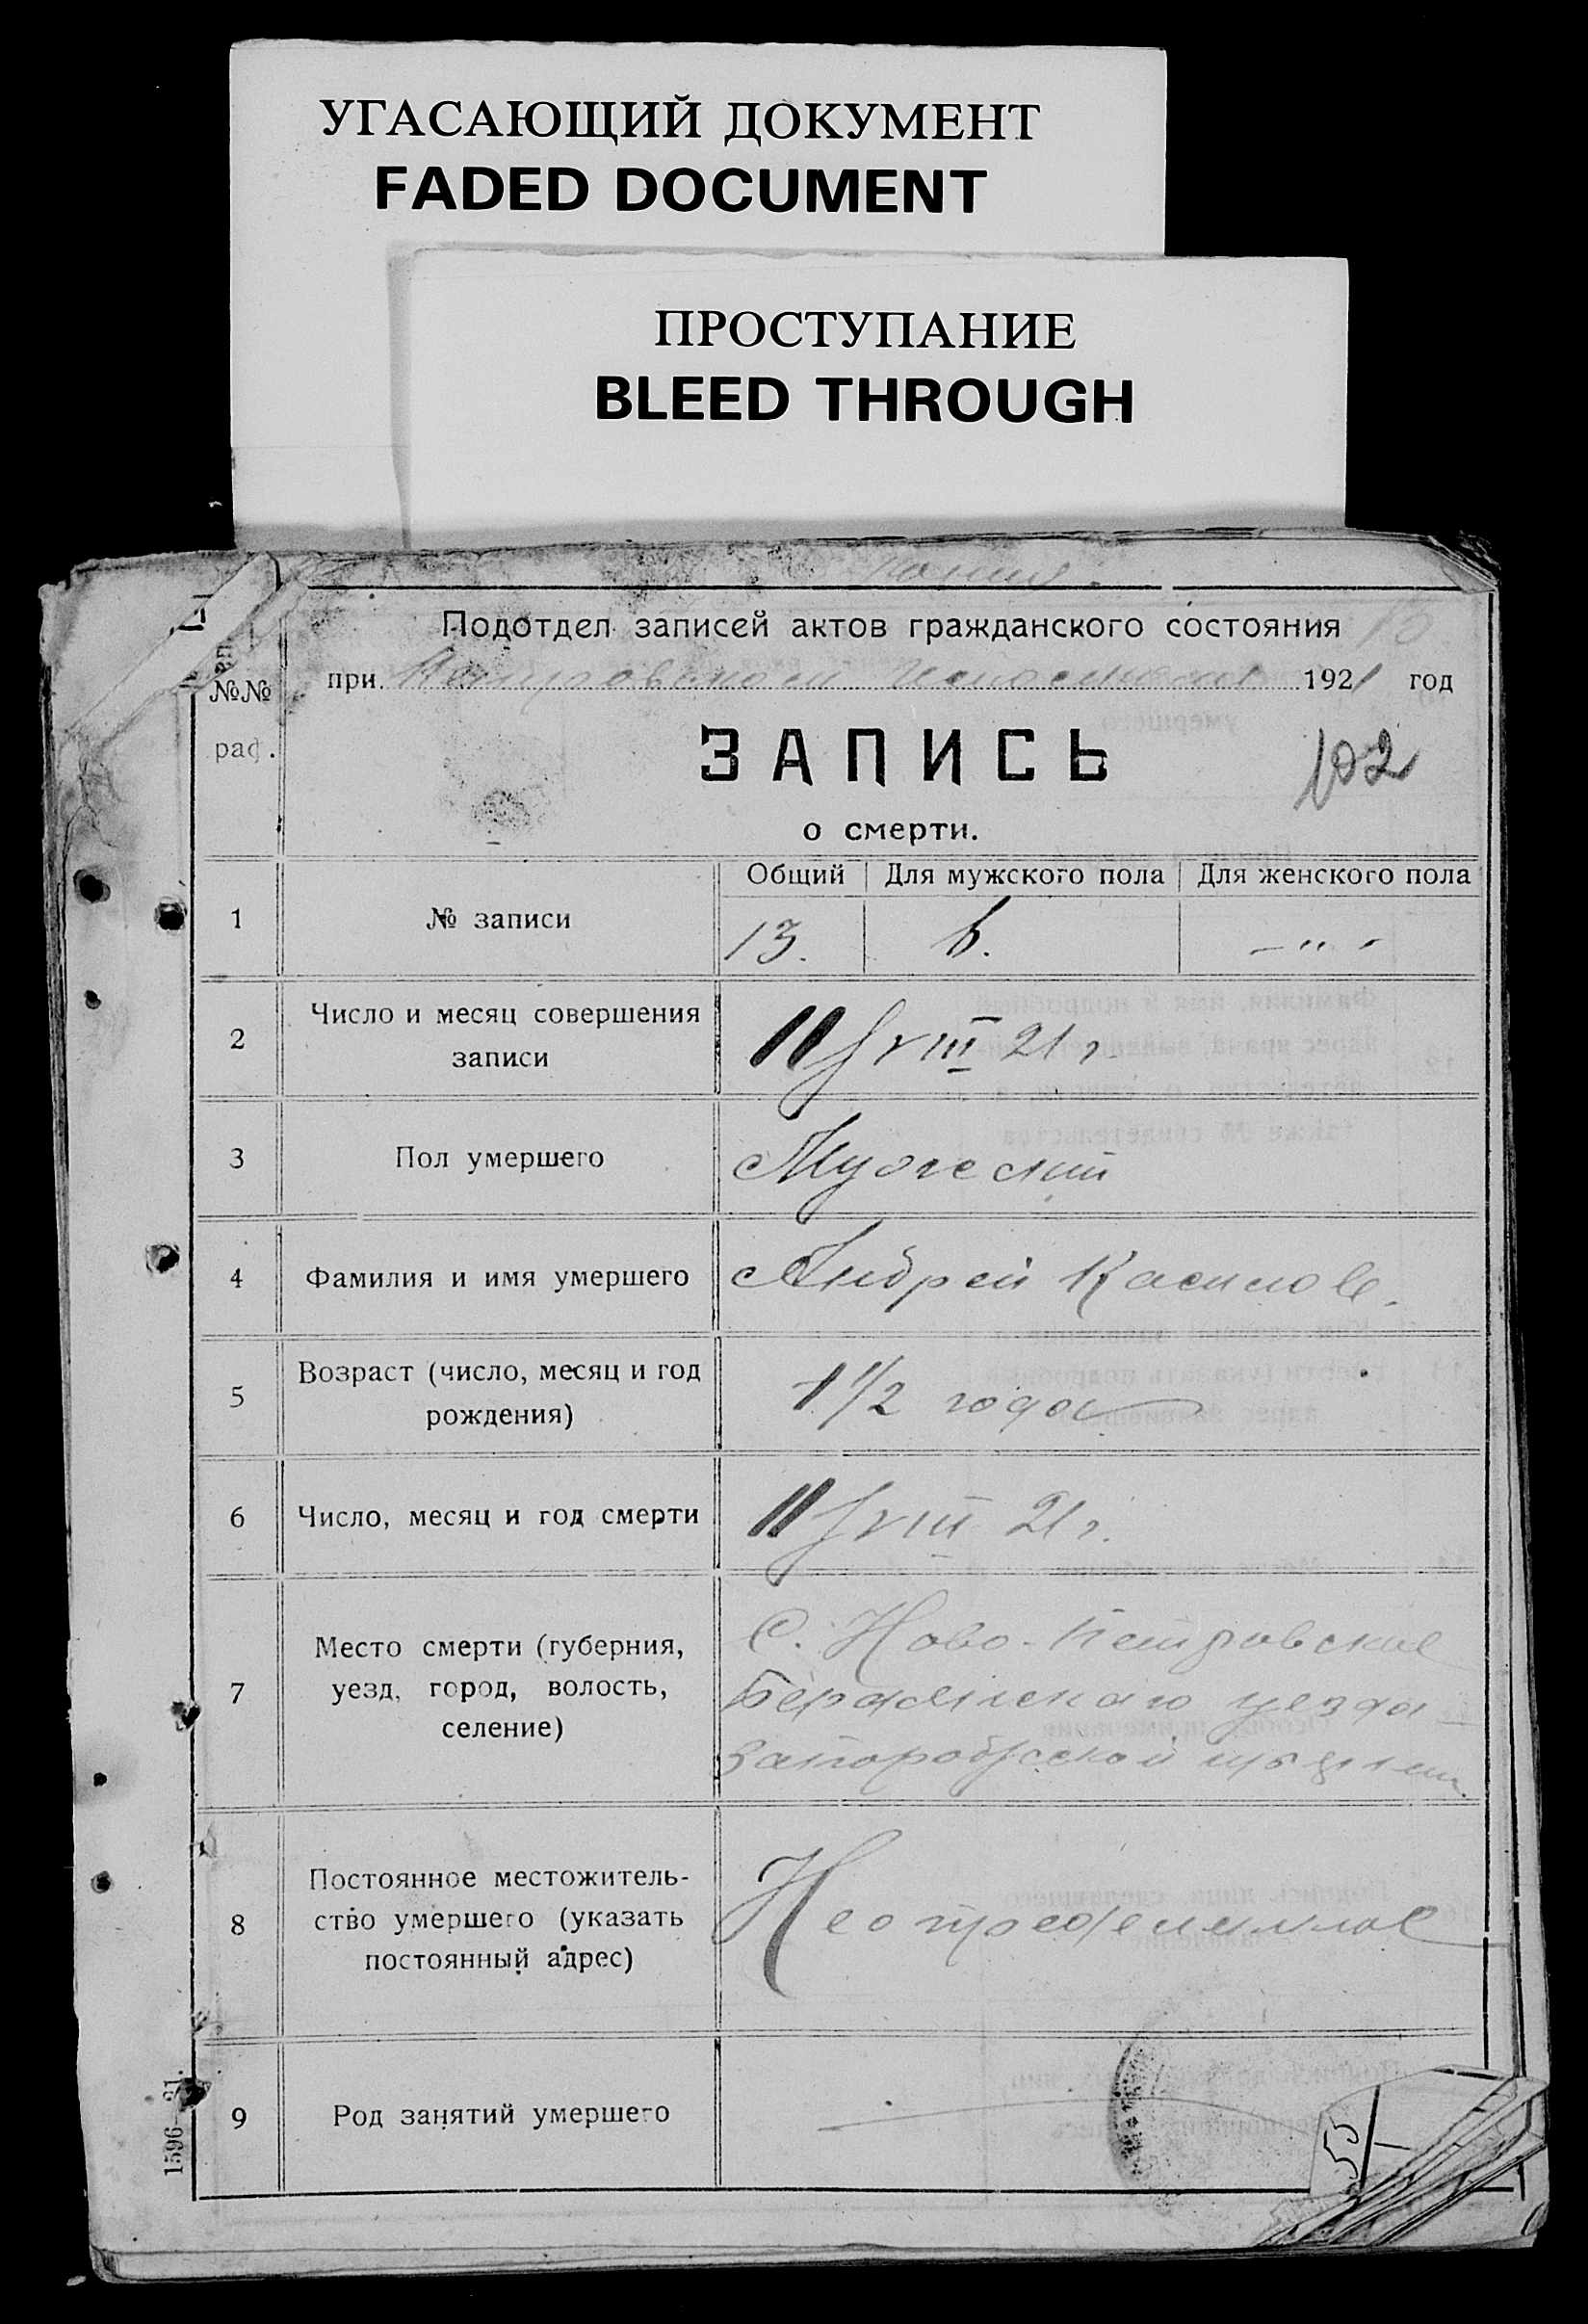 УГАСАЮЩИЙ ДОКУМЕНТ
FADED DOCUMENT
ПРОСТУПАНИЕ
BLEED THROUGH
Копия.
Подотдел записей актов гражданского состояния
при 1921 год
№№
раф.
ЗАПИСЬ
102
о смерти.
Общий Для мужского пола Для женского пола
1 № записи 13. 6. - " -
2 Число и месяц совершения
записи
11/VIII 21 г.
3 Пол умершего Мужеский
4 Фамилия и имя умершего Андрей
5 Возраст (число, месяц и год
рождения)
1 1/2 года
6 Число, месяц и год смерти 11/VIII 21 г.
7 Место смерти (губерния,
уезд, город, волость,
селение)
С. Ново-Петровское
Бердянскаго уезда
Запорожской
8 Постоянное местожитель-
ство умершего (указать
постоянный адрес)
Неопределенное
9 Род занятий умершего —
55
1596—21.